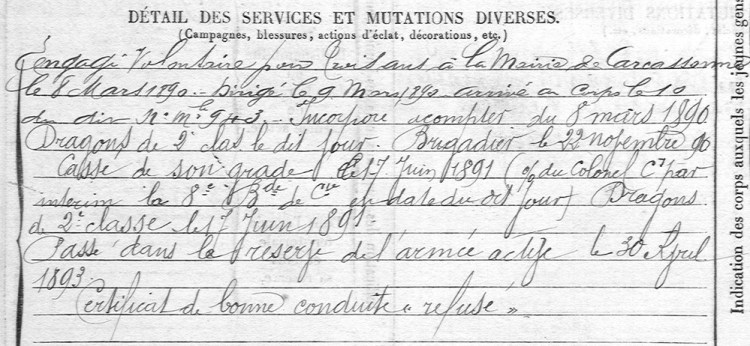 DÉTAIL DES SERVICES ET MUTATIONS DIVERSES.
(Campagnes, blessures, actions d'éclat, décorations, etc.)
Engagé Volontaire pour trois ans à la Mairie de Carcassonne
le 8 Mars 1890. Dirigé le 9 Mars 1890 arrivé au Corps le 10
du dit N° Mle 943. Incorporé à compter du 8 mars 1890
Dragons de 2e clas. le dit jour. Brigadier le 22 novembre 90
Cassé de son grade le 17 Juin 1891 (o/ du Colonel Ct par
interim la 8e Bde de Cie en date du dit jour) Dragons
de 2e classe le 17 Juin 1891.
Passé dans la réserve de l'armée active le 30 Avril
1893.
Certificat de bonne conduite « refusé »
Indication des corps auxquels les jeunes gens